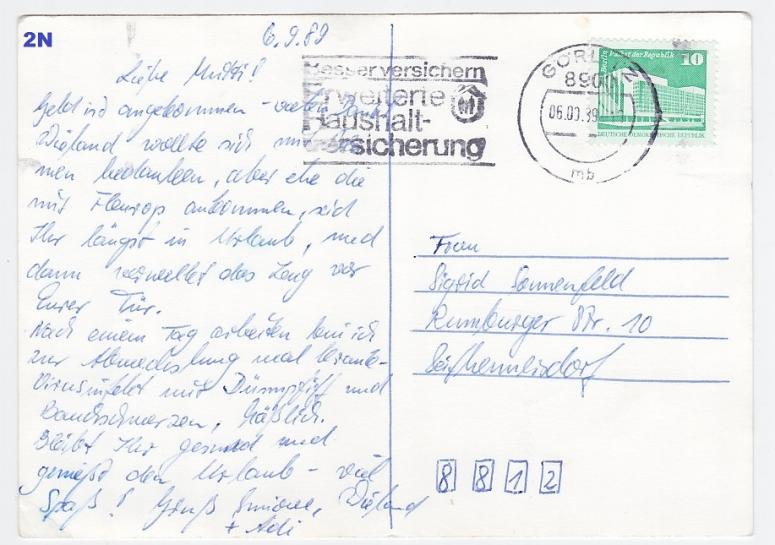 2N
6.9.89
Liebe Mutti!
Geld ist angekommen – vielen Dank
Wieland wollte sich mit
men bedanken, aber ehe die
mit Fleurop ankommen, seid
Ihr längst in Urlaub, und
dann verwelkt das Zeug vor
Eurer Tür.
Nach einem Tag arbeiten bin ich
zur Abwechslung mal krank –
Virusinfekt mit Dünnpfiff und
Bauchschmerzen, häßlich.
Bleibt Ihr gesund und
genießt den Urlaub – viel
Spaß! Gruß Simone, Wieland
+ Adi
Besser versichern
Erweiterte
Haushalt-
versicherung
GÖRLITZ
8900
06.09.89
mb
Berlin Palast der Republik 10
DEUTSCHE DEMOKRATISCHE REPUBLIK
Frau
Sigrid Sonnenfeld
Rumburger Str. 10
Seifhennersdorf
8 8 1 2